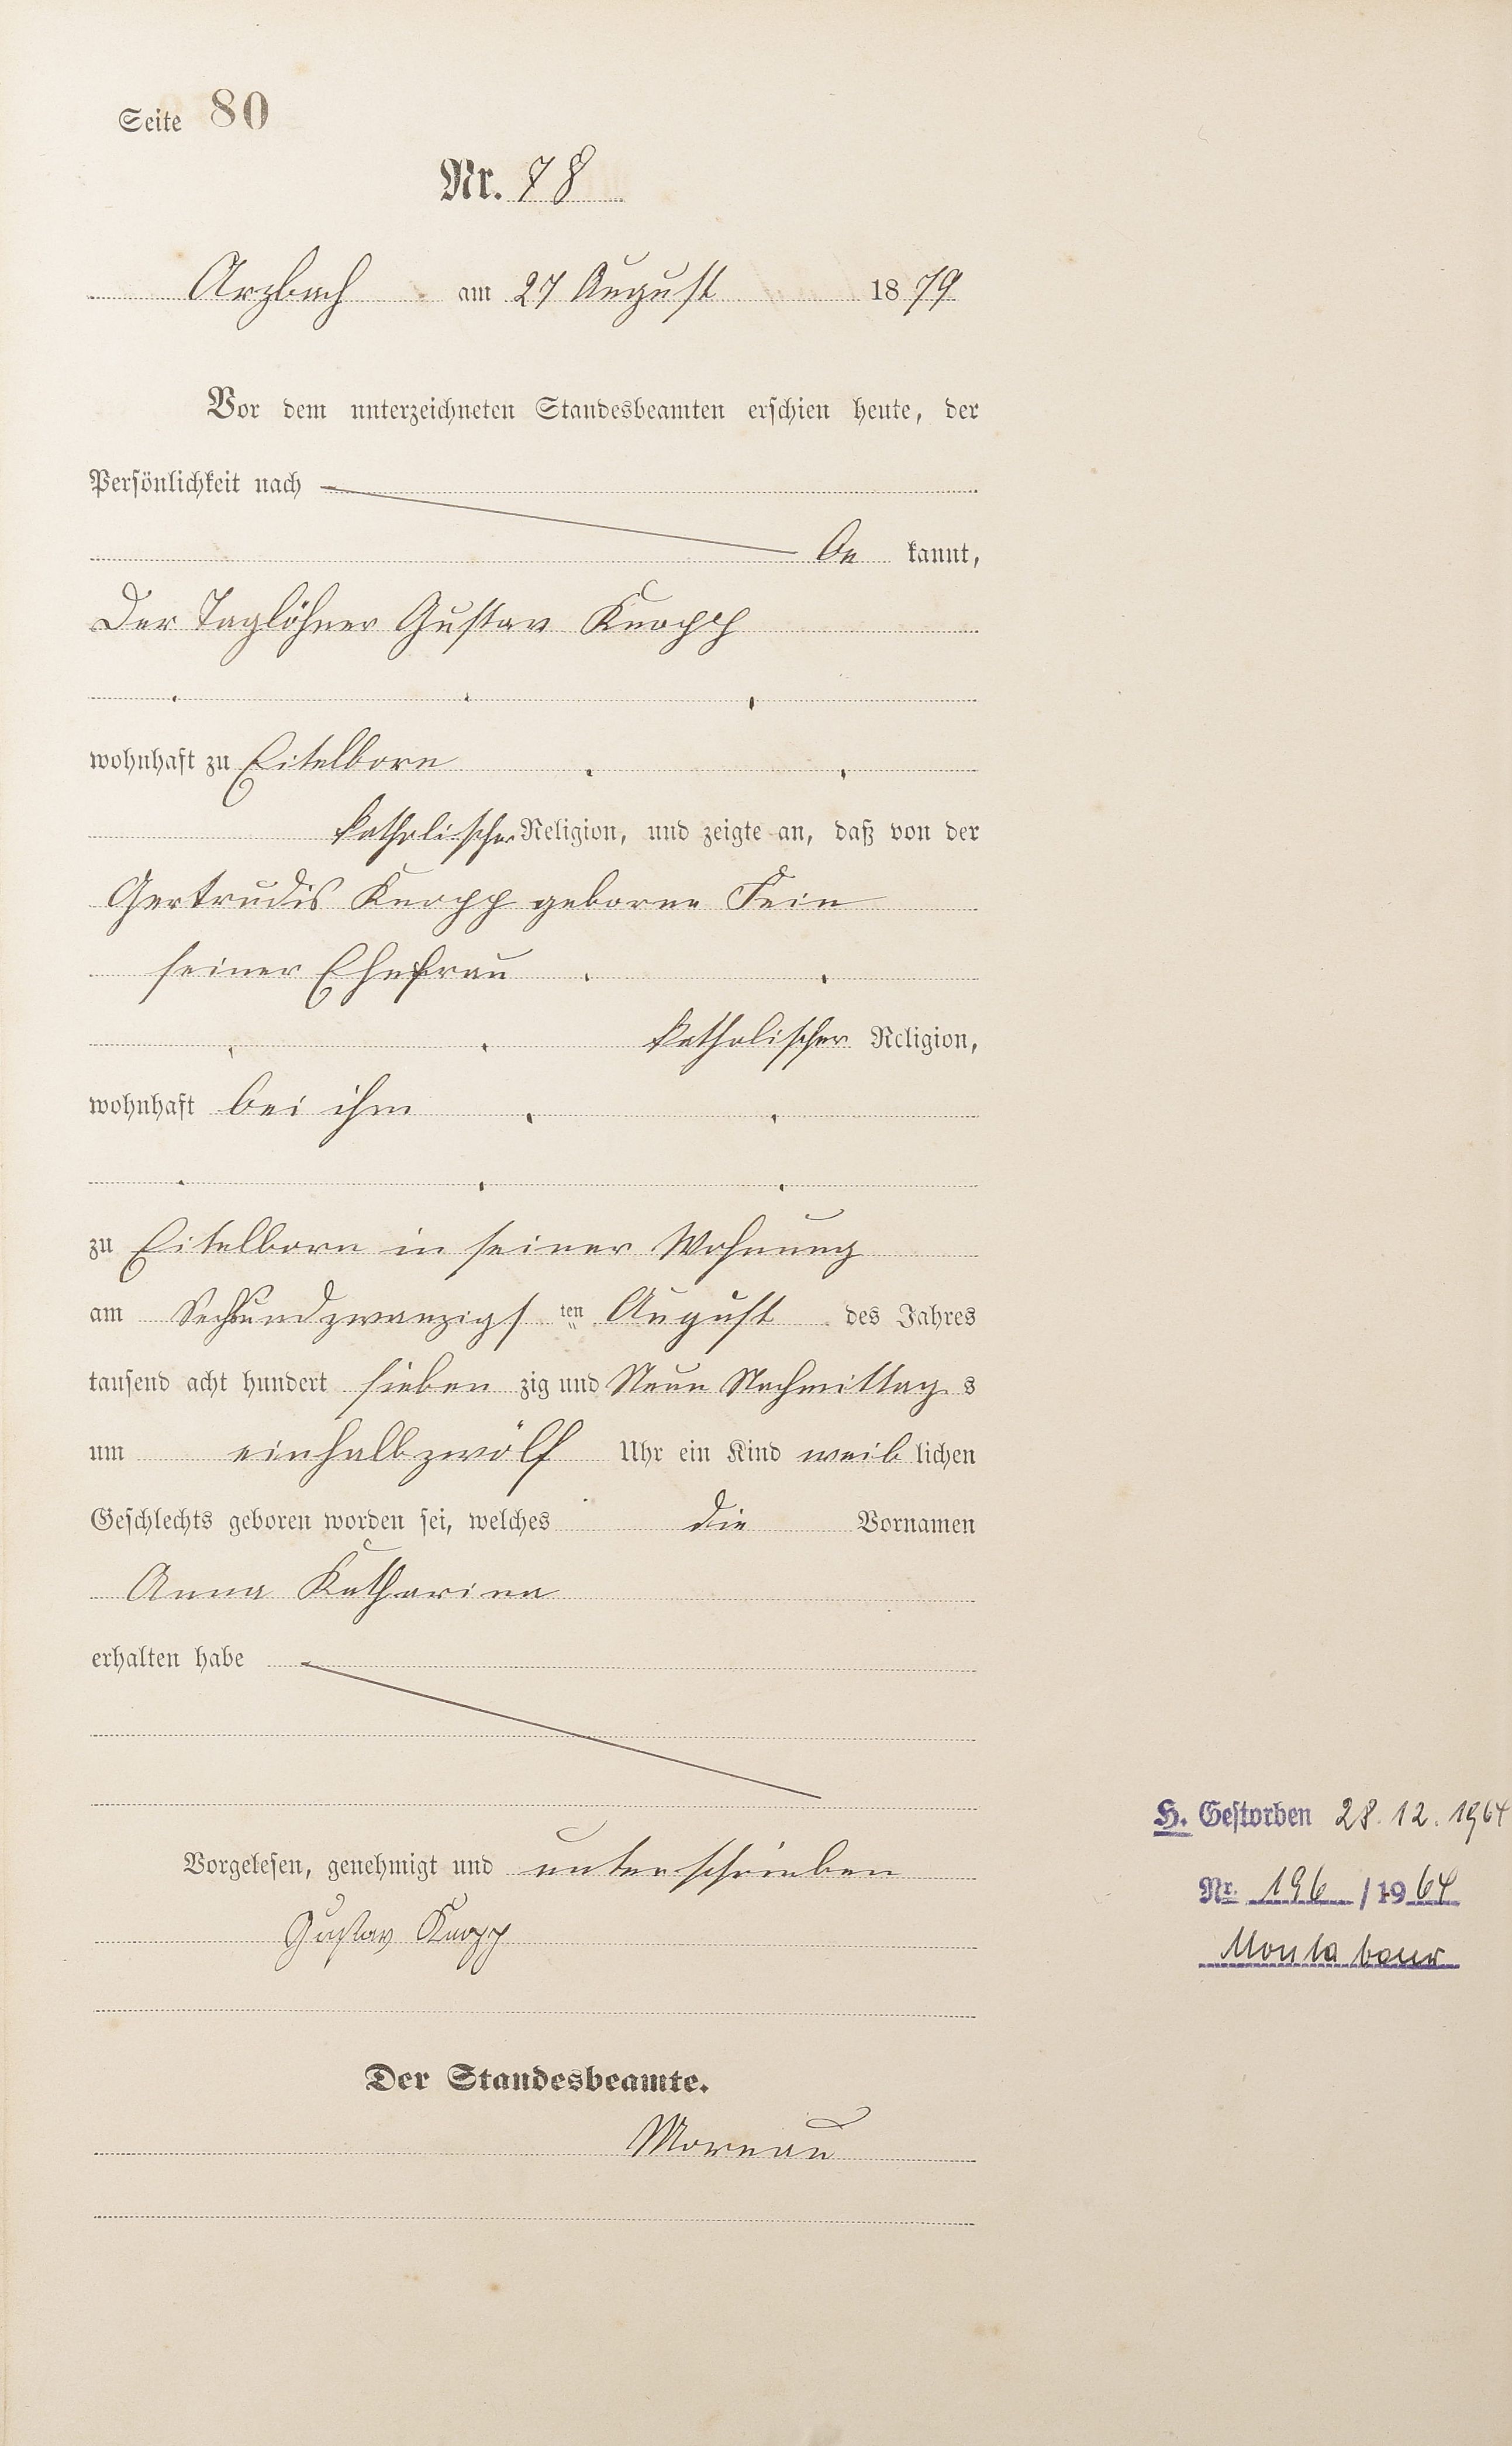 Seite 80
Nr. 78
Arzbach am 27 August 1879
Vor dem unterzeichneten Standesbeamten erschien heute, der
Persönlichkeit nach
be kannt,
Der Taglöhner Gustav Knopp
wohnhaft zu Eitelborn
katholischer Religion, und zeigte an, daß von der
Gertrudis Knopp geborne Fein
seiner Ehefrau
katholischer Religion,
wohnhaft bei ihm
zu Eitelborn in seiner Wohnung
am Sechsundzwanzigs ten August des Jahres
tausend acht hundert sieben zig und Neun Nachmittag s
um einhalbzwölf Uhr ein Kind weib lichen
Geschlechts geboren worden sei, welches die Vornamen
Anna Katharina
erhalten habe
Vorgelesen, genehmigt und unterschrieben
Gustav Knopp
Der Standesbeamte.
Moreau
H. Gestorben 28.12.1964
Nr. 196 / 1964
Montabaur